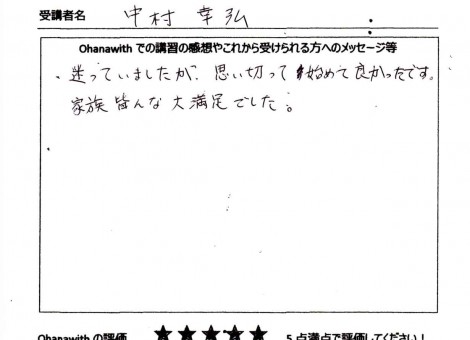 受講者名 中村 幸弘
Ohanawith での講習の感想やこれから受けられる方へのメッセージ等
・迷っていましたが、思い切って始めて良かったです。
家族皆んな大満足でした。
Ohanawith の評価 ★★★★★ 5 点満点で評価してください！